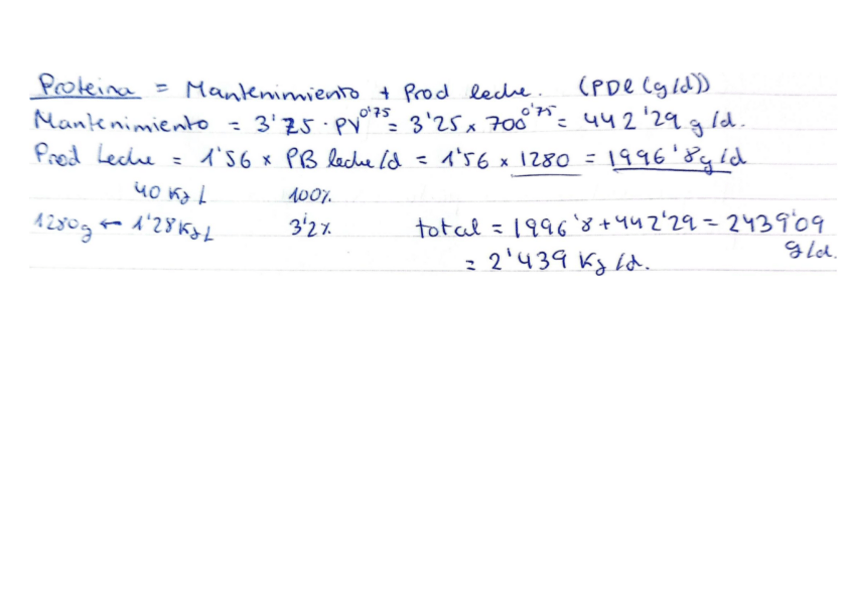 Proteina = Mantenimiento + Prod leche. (PDR (g/d))
Mantenimiento = 3'25 · PV^0'75 = 3'25 x 700^0'75 = 442'29 g/d.
Prod Leche = 1'56 x PB leche/d = 1'56 x 1280 = 1996'8g/d
40 Kg L 100%
1280g ← 1'28 Kg L 3'2% total = 1996'8 + 442'29 = 2439'09 g/d.
= 2'439 Kg/d.